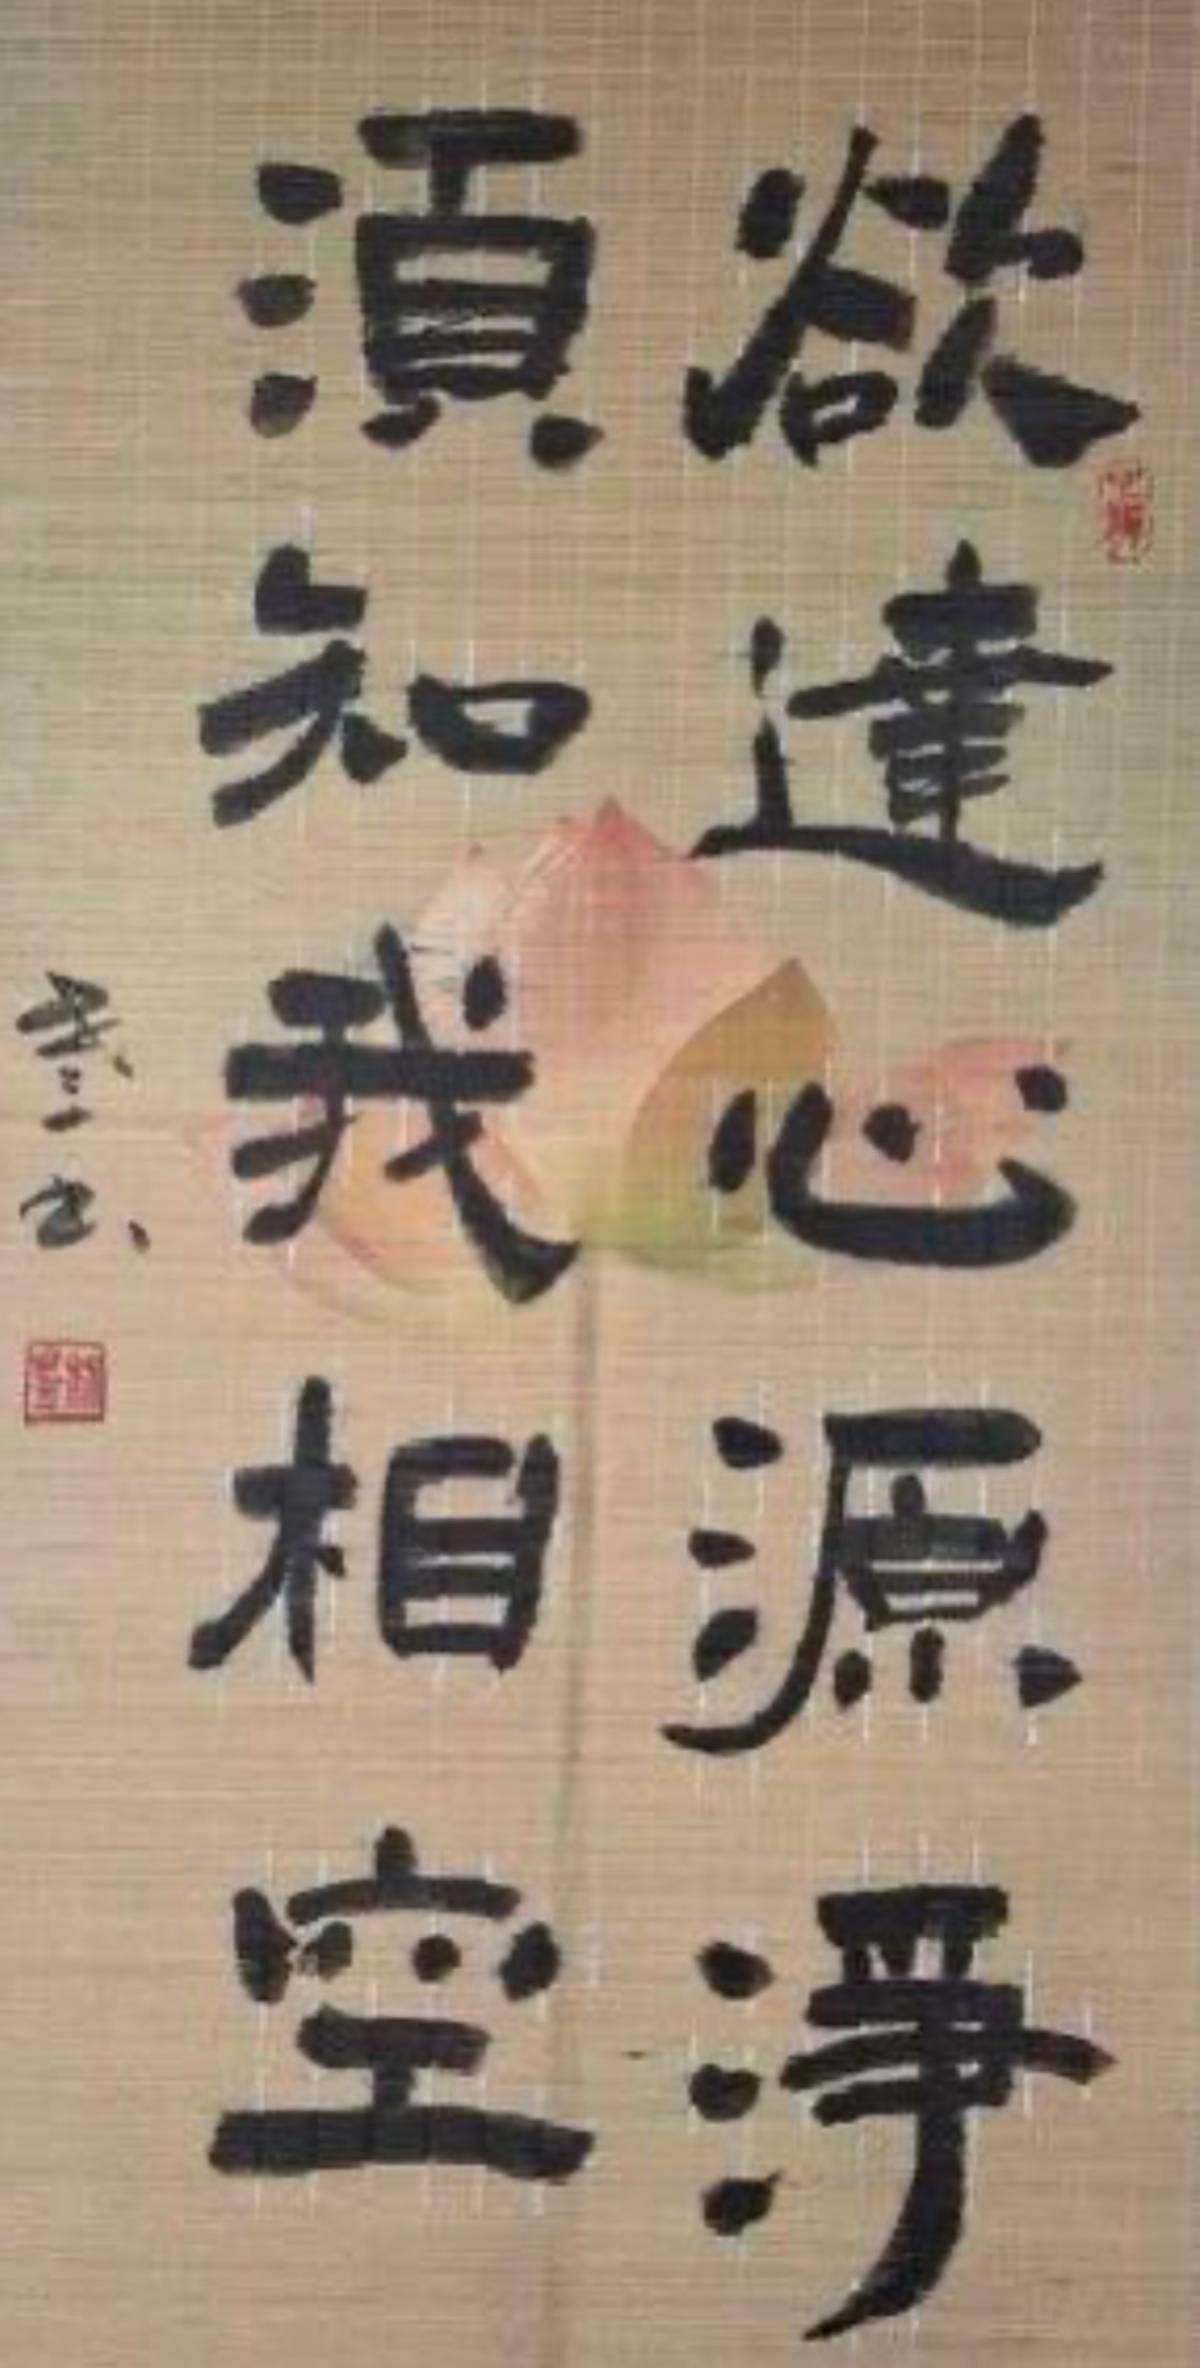 欲達心源淨
湏知我相空